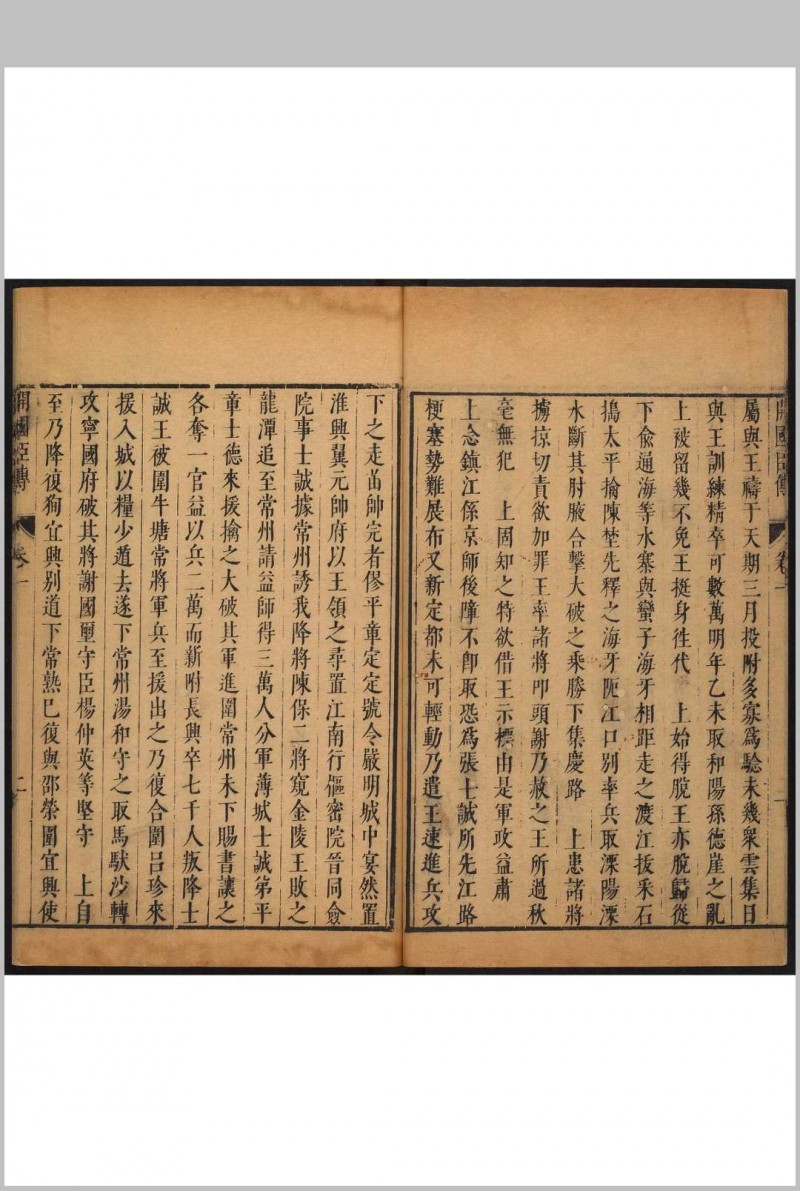 開國臣傳 卷一
屬與王禱于天期三月投附多寡爲驗未幾衆雲集日
與王訓練精卒可數萬明年乙未取和陽孫德崖之亂
上被留幾不免王挺身徃代　上始得脫王亦脫歸從
下俞通海等水寨與蠻子海牙相距走之渡江拔采石
搗太平擒陳埜先釋之海牙阨江口别率兵取溧陽溧
水斷其肘腋合擊大破之乘勝下集慶路　上患諸將
擄掠切責欲加罪王率諸將叩頭謝乃赦之王所過秋
毫無犯　上固知之特欲借王示標由是軍政益肅
上念鎮江係京師後障不卽取恐爲張士誠所先江路
梗塞勢難展布又新定都未可輕動乃遣王速進兵攻
下之走苗帥完者僇平章定定號令嚴明城中宴然置
淮興翼元帥府以王領之尋置江南行樞密院晉同僉
院事士誠據常州誘我降將陳保二將窺金陵王敗之
龍潭追至常州請益師得三萬人分軍薄城士誠弟平
章士德來援擒之大破其軍進圍常州未下賜書讓之
各奪一官益以兵二萬而新附長興卒七千人叛降士
誠王被圍牛塘常將軍兵至援出之乃復合圍呂珍來
援入城以糧少遁去遂下常州湯和守之取馬馱沙轉
攻寧國府破其將謝國璽守臣楊仲英等堅守　上自
至乃降復狥宜興别道下常熟巳復與邵榮圍宜興使
開國臣傳 卷一 二